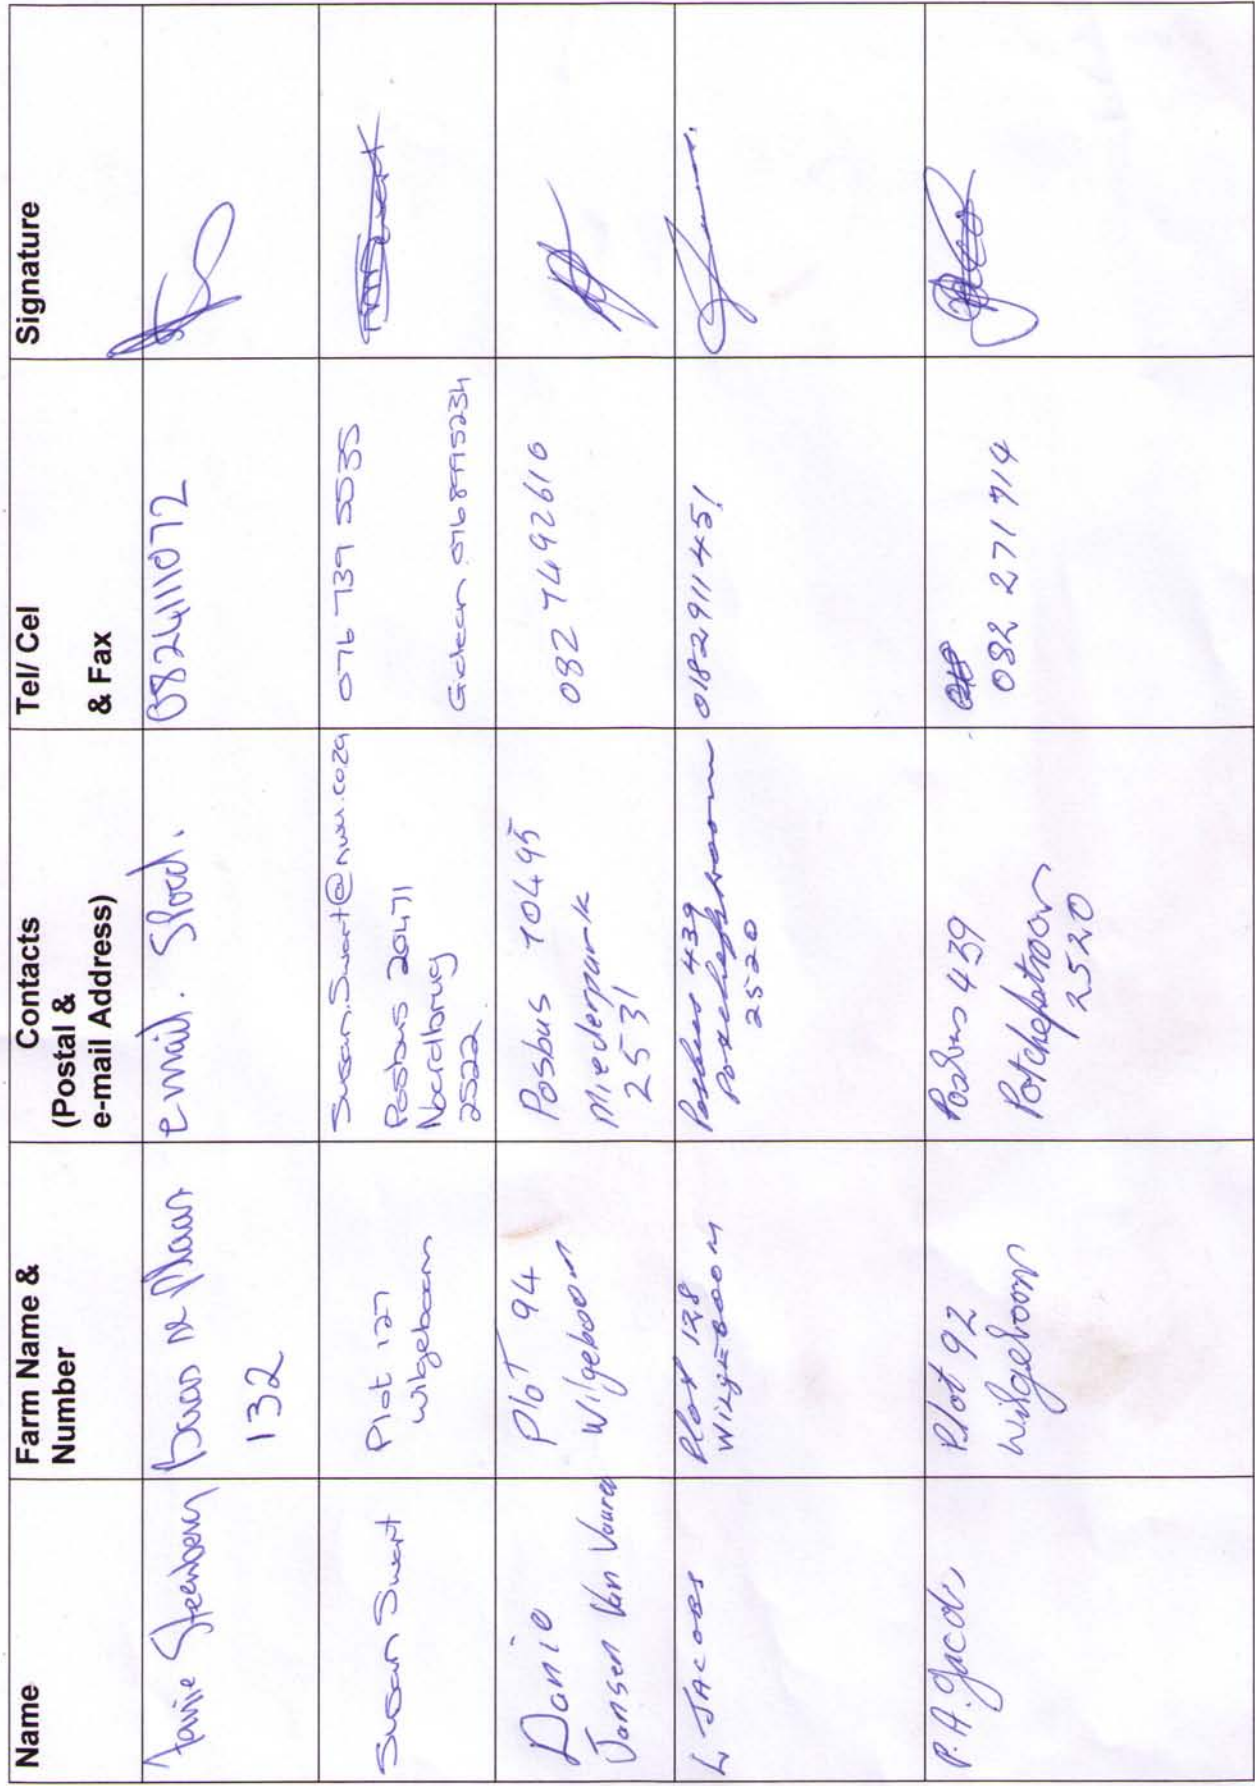 Name
Farm Name &
Number
Contacts
(Postal &
e-mail Address)
Tel/ Cel
& Fax
Signature
Steenberg
132
email.
0824111072
Susan Swart
Plot 127
Wilgeboom
Susan.Swart@nwu.co.za
Posbus 20471
Noordbrug
2522
076 739 5535
Danie
Jansen Van Vuuren
Plot 94
Wilgeboom
Posbus 10495
Miederpark
2531
082 7492616
L JACOBS
Plot 128
WILGEBOOM
Posbus 439
Potchefstroom
2520
0182911451
P.A. Jacobs
Plot 92
Wilgeboom
Posbus 439
Potchefstroom
2520
082 271 714